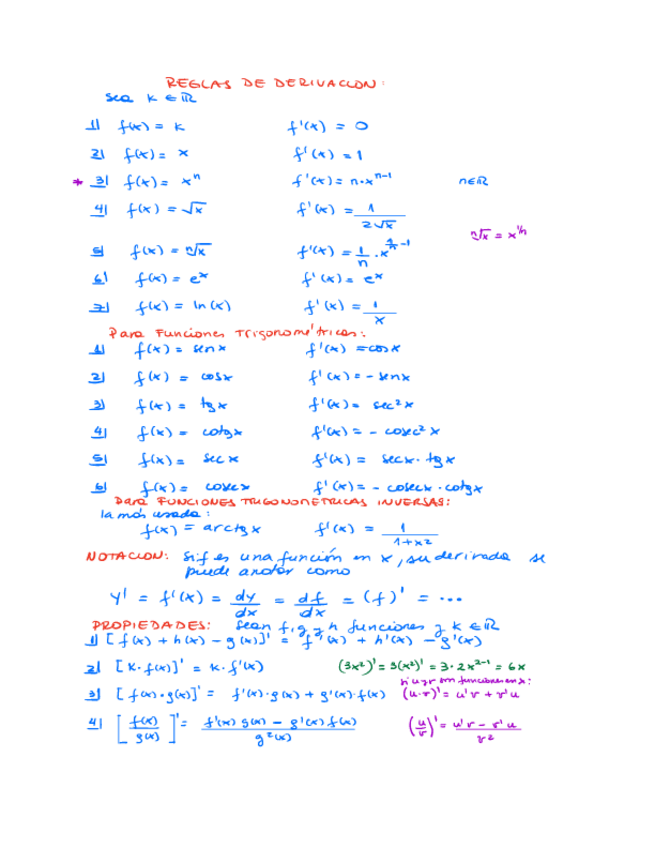 REGLAS DE DERIVACION:
Sea k ∈ ℝ
1) f(x) = k f'(x) = 0
2) f(x) = x f'(x) = 1
* 3) f(x) = xⁿ f'(x) = n·xⁿ⁻¹ n∈ℝ
4) f(x) = √x f'(x) = 1/(2√x)
ⁿ√x = x^(1/n)
5) f(x) = ⁿ√x f'(x) = 1/n · x^(1/n − 1)
6) f(x) = eˣ f'(x) = eˣ
7) f(x) = ln(x) f'(x) = 1/x
Para Funciones Trigonométricas:
1) f(x) = senx f'(x) = cosx
2) f(x) = cosx f'(x) = - senx
3) f(x) = tgx f'(x) = sec²x
4) f(x) = cotgx f'(x) = - cosec²x
5) f(x) = secx f'(x) = secx · tgx
6) f(x) = cosecx f'(x) = - cosecx · cotgx
Para FUNCIONES TRIGONOMÉTRICAS INVERSAS:
la más usada:
f(x) = arctgx f'(x) = 1/(1+x²)
NOTACION: Si f es una función en x, su derivada se
puede anotar como
y' = f'(x) = dy/dx = df/dx = (f)' = ...
PROPIEDADES: Sean f, g y h funciones y k ∈ ℝ
1) [f(x) + h(x) − g(x)]' = f'(x) + h'(x) − g'(x)
2) [k·f(x)]' = k·f'(x) (3x²)' = 3(x²)' = 3·2x²⁻¹ = 6x
Si u y v son funciones en x:
3) [f(x)·g(x)]' = f'(x)·g(x) + g'(x)·f(x) (u·v)' = u'v + v'u
4) [f(x)/g(x)]' = (f'(x) g(x) − g'(x) f(x))/g²(x) (u/v)' = (u'v − v'u)/v²